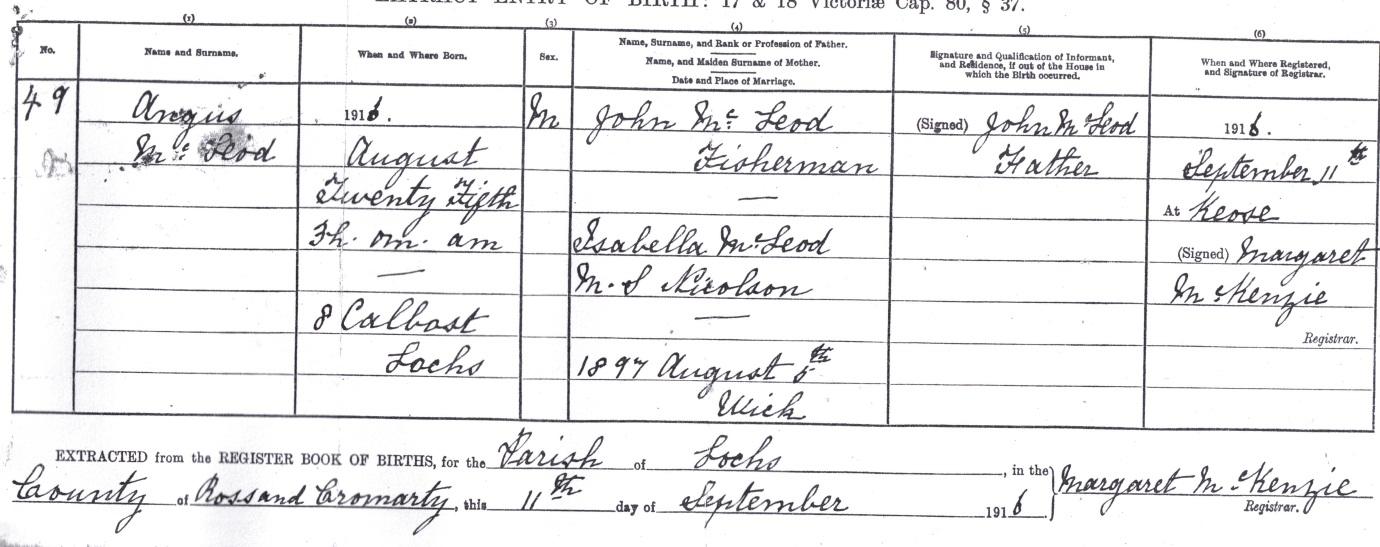 EXTRACT ENTRY OF BIRTH: 17 & 18 Victoriæ Cap. 80, § 37.
(1) (2) (3) (4) (5) (6)
No.
Name and Surname.
When and Where Born.
Sex.
Name, Surname, and Rank or Profession of Father.
Name, and Maiden Surname of Mother.
Date and Place of Marriage.
Signature and Qualification of Informant,
and Residence, if out of the House in
which the Birth occurred.
When and Where Registered,
and Signature of Registrar.
49
Angus
Mc Leod
1916.
August
Twenty Fifth
3h. om. am
—
8 Calbost
Lochs
M
John Mc Leod
Fisherman
—
Isabella McLeod
M.S Nicolson
—
1897 August 5th
Wick
(Signed) John McLeod
Father
1916.
September 11th
At Keose
(Signed) Margaret
McKenzie
Registrar.
EXTRACTED from the REGISTER BOOK OF BIRTHS, for the Parish of Lochs, in the
County of Ross and Cromarty, this 11th day of September 1916.
Margaret McKenzie
Registrar.